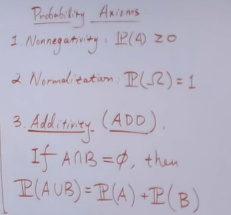 Probability Axioms
1. Nonnegativity: ℙ(A) ≥ 0
2. Normalization: ℙ(Ω) = 1
3. Additivity (ADD).
If A∩B = ∅, then
ℙ(A∪B) = ℙ(A) + ℙ(B)